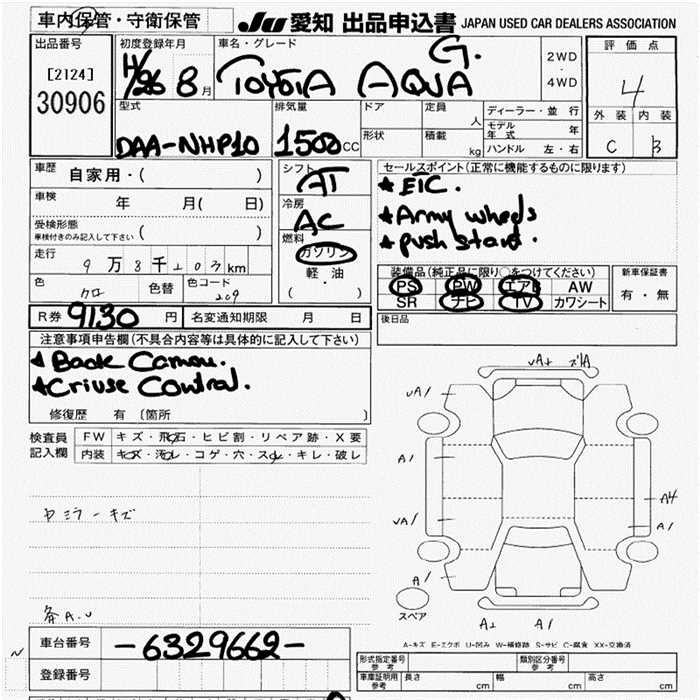 車内保管・守衛保管
JU 愛知 出品申込書 JAPAN USED CAR DEALERS ASSOCIATION
出品番号 初度登録年月 車名・グレード 評価点
[2124]
30906
H/26 8月 TOYOTA AQUA G.
2WD
・
4WD
4
型式 排気量 ドア 定員 人 ディーラー・並行 外装 内装
モデル年式 年
DAA-NHP10 1500cc 形状 積載 kg ハンドル 左・右 C B
車歴 自家用・( )
シフト AT
セールスポイント(正常に機能するものに限ります)
★ ETC.
★Army wheels
★push start.
車検 年 月( 日)
冷房 AC
受検形態
車検付きのみ記入して下さい ( )
燃料
ガソリン
軽・油
( ・ )
走行 9万8千203km
色 クロ 色替 色コード 209
装備品(純正品に限り○をつけてください) 新車保証書
PS PW エアB AW
SR ナビ TV カワシート
有・無
R券 9130円 名変通知期限 月 日
後日品
注意事項申告欄(不具合内容等は具体的に記入して下さい)
★Back Camou.
★Criuse Control.
修復歴 有 〔箇所 〕
検査員記入欄
FW キズ・飛石・ヒビ割・リペア跡・X要
内装 キズ・汚レ・コゲ・穴・スレ・キレ・破レ
A1
A1
A4
A1
A1
A1
スペア
A-キズ E-エクボ U-凹み W-補修跡 S-サビ C-腐食 XX-交換済
車台番号 -6329662-
登録番号
形式指定番号 参考 類別区分番号 参考
車庫証明用 参考 長さ cm 幅 cm 高さ cm